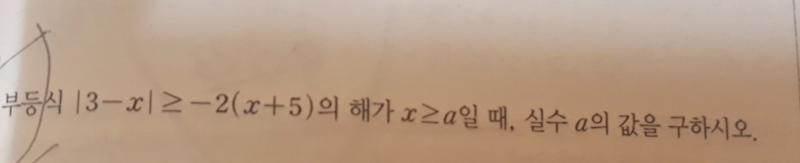 부등식 |3-x|≥-2(x+5)의 해가 x≥a일 때, 실수 a의 값을 구하시오.